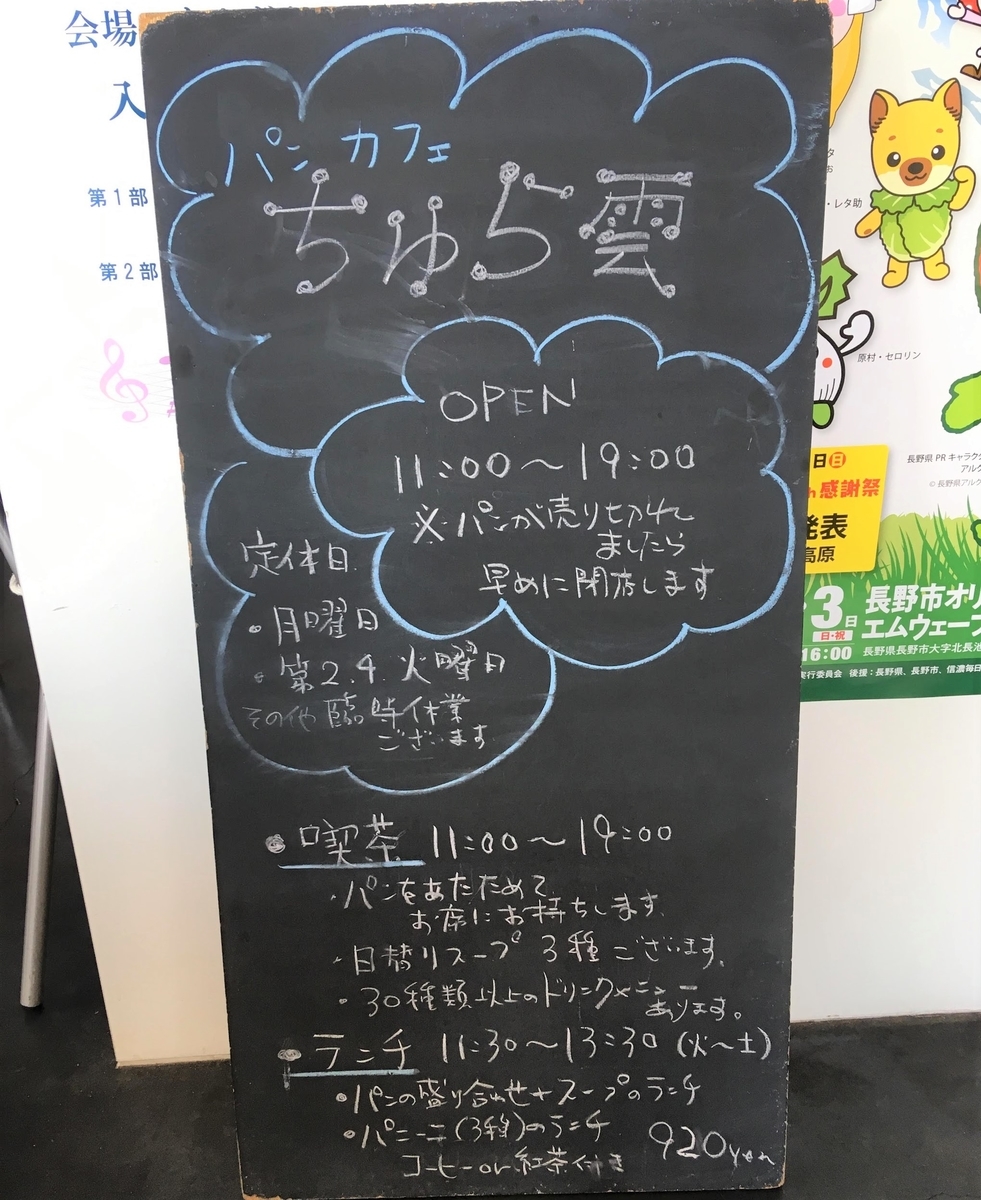 会場
入
第1部
第2部
パン カフェ
ちゅら雲
OPEN
11:00〜19:00
※パンが売り切れ
ましたら
早めに閉店します
定休日
・月曜日
・第2.4.火曜日
その他臨時休業
ございます
・喫茶 11:00〜19:00
・パンをあたためて
お席にお持ちします
・日替りスープ 3種ございます。
・30種類以上のドリンクメニュー
あります。
・ランチ 11:30〜13:30(火〜土)
・パンの盛り合わせ+スープのランチ
・パニーニ(3種)のランチ
コーヒーor紅茶付き
920yen
・レタ助
原村・セロリン
長野県PRキャラク
アルク
©長野県アルク
日(日)
感謝祭
発表
高原
3日
日・祝
16:00
長野市オリ
エムウェーブ
長野県長野市大字北長池
実行委員会 後援:長野県、長野市、信濃毎日